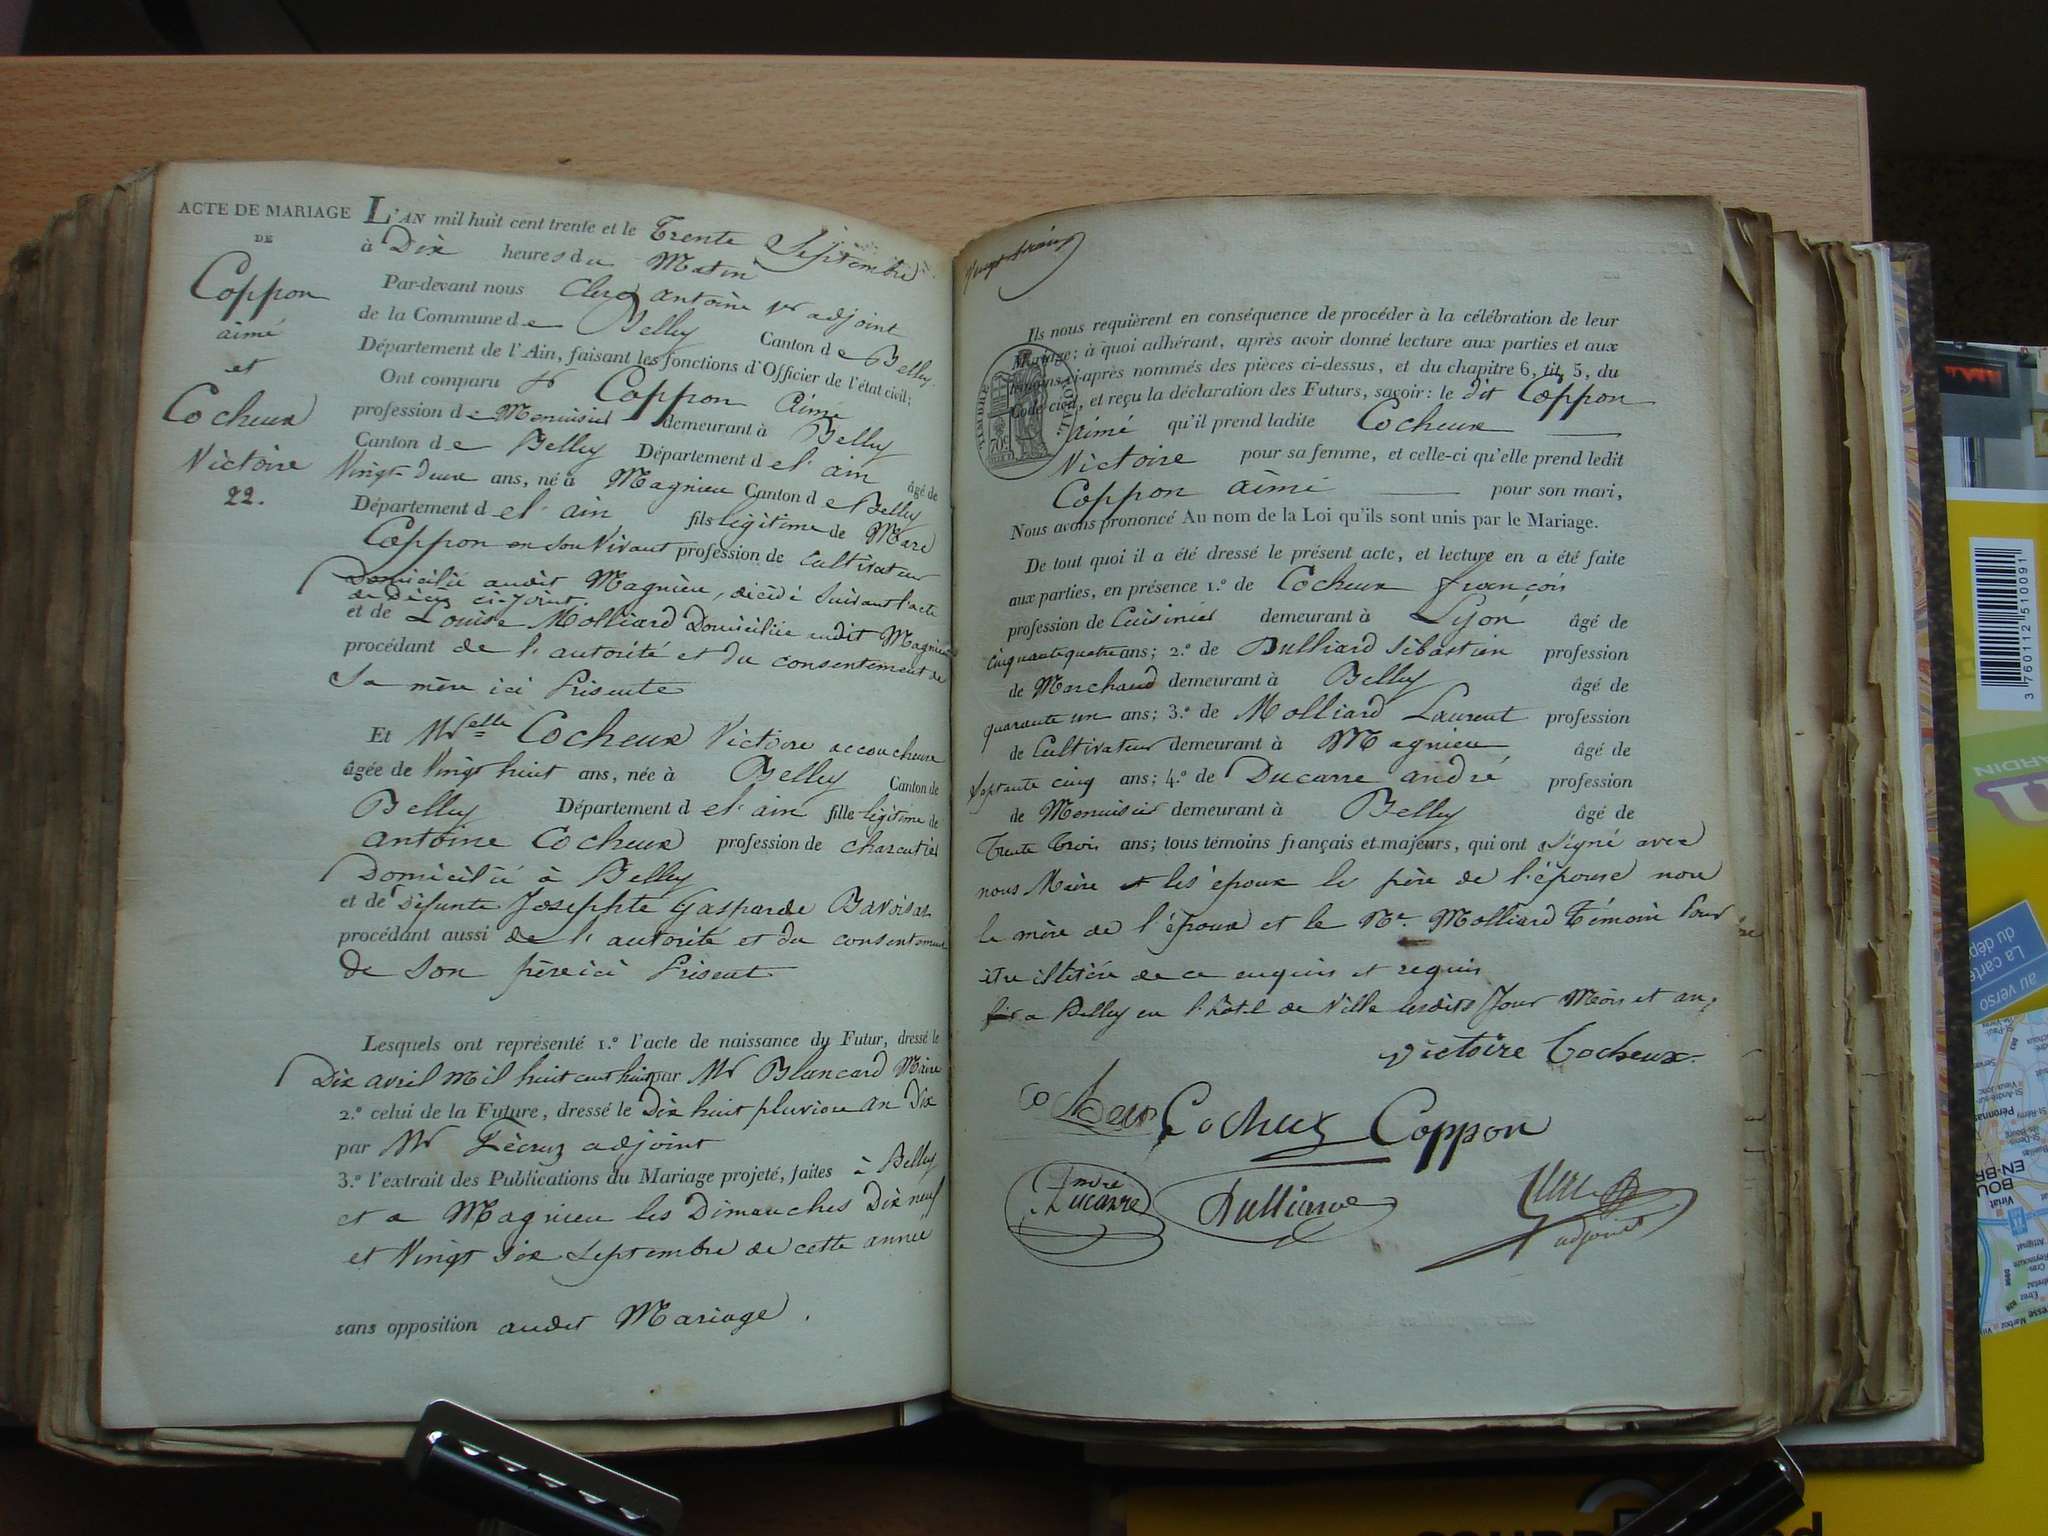 ACTE DE MARIAGE
DE
Coppon
aimé
et
Cocheux
Victoire
22.
L'AN mil huit cent trente et le Trente Septembre
à Dix heures du Matin
Par-devant nous Clerc antoine 1er adjoint
de la Commune de Belley Canton de Belley
Département de l'Ain, faisant les fonctions d'Officier de l'état civil;
Ont comparu Coppon Aimé
profession de Menuisier demeurant à Belley
Canton de Belley Département de l'ain âgé de
Vingt-deux ans, né à Magnieu Canton de Belley
Département de l'ain fils légitime de Marc
Coppon en son Vivant profession de Cultivateur
Domicilié audit Magnieu, décédé suivant l'acte
de Décès ci-joint.
et de Louise Molliard Domiciliée audit Magnieu
procédant de l'autorité et du consentement de
Sa mère ici Présente
Et Melle Cocheux Victoire accoucheuse
âgée de Vingt huit ans, née à Belley Canton de
Belley Département de l'ain fille légitime de
antoine Cocheux profession de charcutier
Domicilié à Belley
et de défunte Josephte Gasparde Bavoisat
procédant aussi de l'autorité et du consentement
de Son père ici Présent
Lesquels ont représenté 1.º l'acte de naissance du Futur, dressé le
Dix avril mil huit cent huit par Mr Blancard Maire
2.º celui de la Future, dressé le Dix huit pluviose an Dix
par Mr adjoint
3.º l'extrait des Publications du Mariage projeté, faites à Belley
et a Magnieu les Dimanches Dix neuf
et Vingt Six Septembre de cette année
sans opposition audit Mariage.
Ils nous requièrent en conséquence de procéder à la célébration de leur
Mariage; à quoi adhérant, après avoir donné lecture aux parties et aux
témoins ci-après nommés des pièces ci-dessus, et du chapitre 6, tit. 5, du
Code civil, et reçu la déclaration des Futurs, savoir: le dit Coppon
Aimé qu'il prend ladite Cocheux
Victoire pour sa femme, et celle-ci qu'elle prend ledit
Coppon aimé pour son mari,
TIMBRE ROYAL
70c
Nous avons prononcé Au nom de la Loi qu'ils sont unis par le Mariage.
De tout quoi il a été dressé le présent acte, et lecture en a été faite
aux parties, en présence 1.º de Cocheux françois
profession de Cuisinier demeurant à Lyon âgé de
cinquante quatre ans; 2.º de Dulliard Sébastien profession
de Marchand demeurant à Belley âgé de
quarante un ans; 3.º de Molliard Laurent profession
de Cultivateur demeurant à Magnieu âgé de
Septante cinq ans; 4.º de Ducarre andré profession
de Menuisier demeurant à Belley âgé de
Trente Trois ans; tous témoins français et majeurs, qui ont Signé avec
nous Maire et les époux le père de l'épouse non
la mère de l'époux et le Mr. Molliard Témoin Pour
être illitéré de ce enquis et requis
a Belley en l'hôtel de Ville lesdits Jour Mois et an.
Victoire Cocheux
Cocheux Coppon
andré
Ducarre
adjoint
3 760112 510091
La carte
du dép
au verso
JARDIN
Péronnas
BOU
EN-BR
Viriat
Attignat